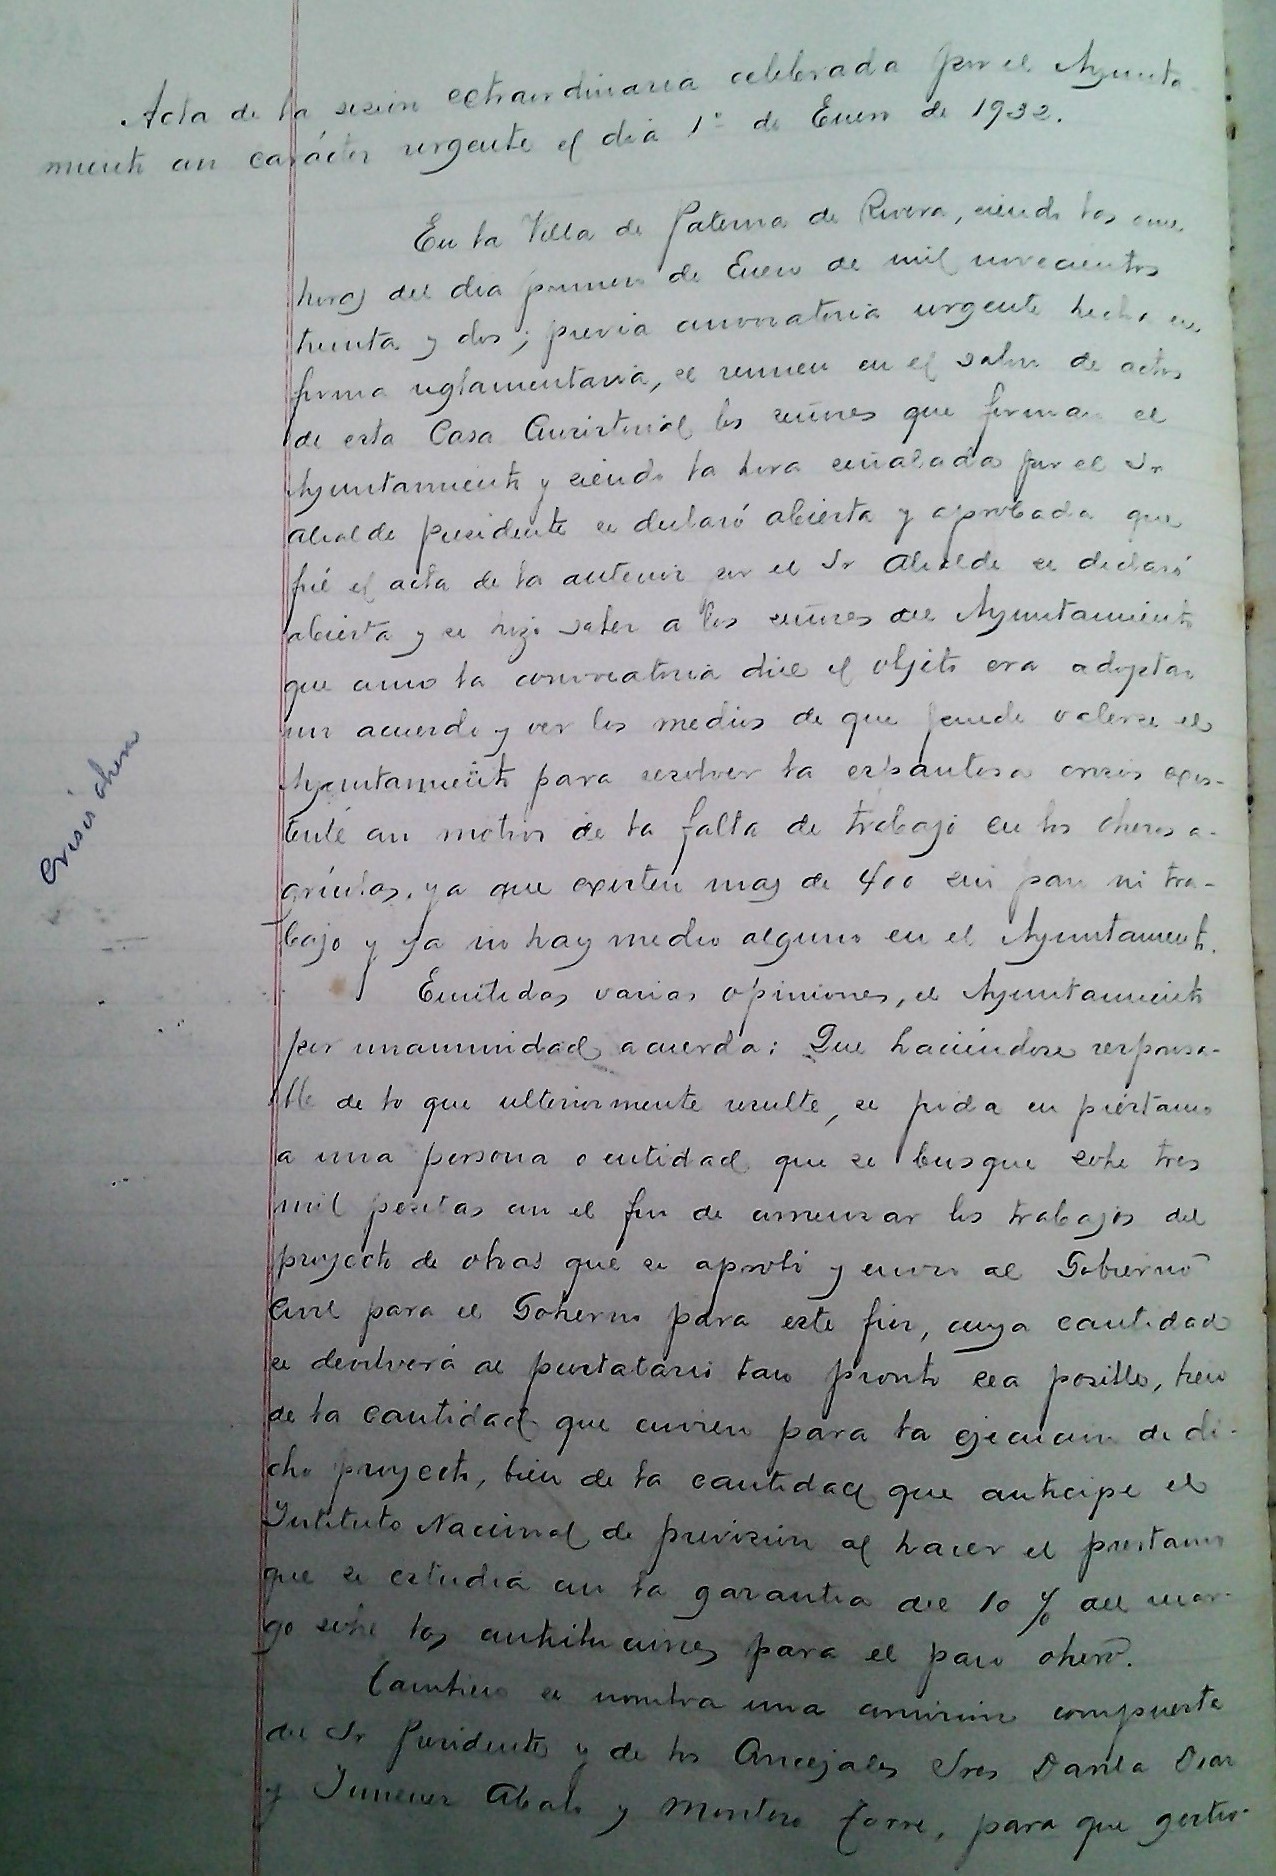 Acta de la sesión extraordinaria celebrada por el Ayunta-
miento con carácter urgente el día 1º de Enero de 1932.
En la Villa de Paterna de Rivera, siendo las once
horas del dia primero de Enero de mil novecientos
treinta y dos; previa convocatoria urgente hecha en
forma reglamentaria, se reunen en el salon de actos
de esta Casa Consistorial los señores que forman el
Ayuntamiento y siendo la hora señalada por el Sr
Alcalde Presidente se declaró abierta y aprobada que
fué el acta de la anterior por el Sr Alcalde se declaró
abierta y se hizo saber a los señores del Ayuntamiento
que como la convocatoria dice el objeto era adoptar
un acuerdo y ver los medios de que puede valerse el
Ayuntamiento para resolver la espantosa crisis exis-
tente con motivo de la falta de trabajo en los obreros a-
grícolas, ya que existen mas de 400 sin pan ni tra-
bajo y ya no hay medio alguno en el Ayuntamiento.
Crisis obrera
Emitidas varias opiniones, el Ayuntamiento
por unanimidad acuerda: Que haciéndose responsa-
ble de lo que ulteriormente resulte, se pida en préstamo
a una persona o entidad que se busque sobre tres
mil pesetas con el fin de comenzar los trabajos del
proyecto de obras que se aprobó y envio al Gobierno
Civil para el Gobierno para este fin, cuya cantidad
se devolverá al prestatario tan pronto sea posible, bien
de la cantidad que envien para la ejecucion de di-
cho proyecto, bien de la cantidad que anticipe el
Instituto Nacional de prevision al hacer el prestamo
que se estudia con la garantia del 10 % del recar-
go sobre las contribuciones para el paro obrero.
Tambien se nombra una comision compuesta
del Sr Presidente y de los Concejales Sres Davila Diaz
y Jimenez Abalo y Montero Torre, para que gestio-